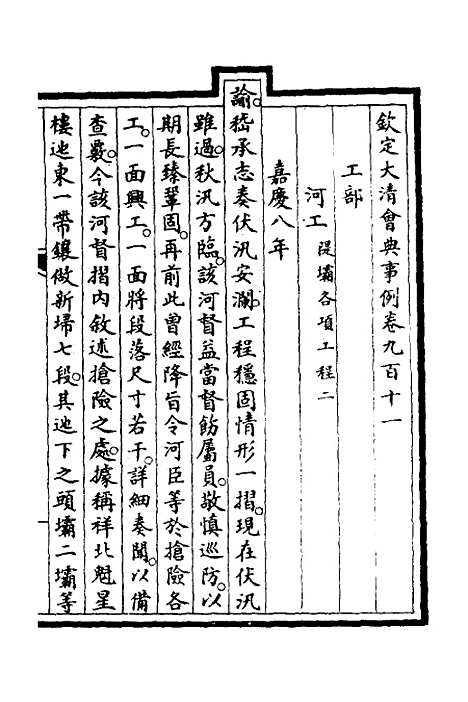 欽定大清會典事例卷九百十一
工部
河工隄壩各項工程二
嘉慶八年
諭。嵇承志奏伏汛安瀾。工程穩固情形一摺。現在伏汛
雖過。秋汛方臨。該河督益當督飭屬員。敬慎巡防。以
期長臻鞏固。再前此曾經降旨令河臣等於搶險各
工。一面興工。一面將段落尺寸若干。詳細奏聞。以備
查覈。今該河督摺內敘述搶險之處。據稱祥北魁星
樓迤東一帶鑲做新埽七段。其迤下之頭壩二壩等